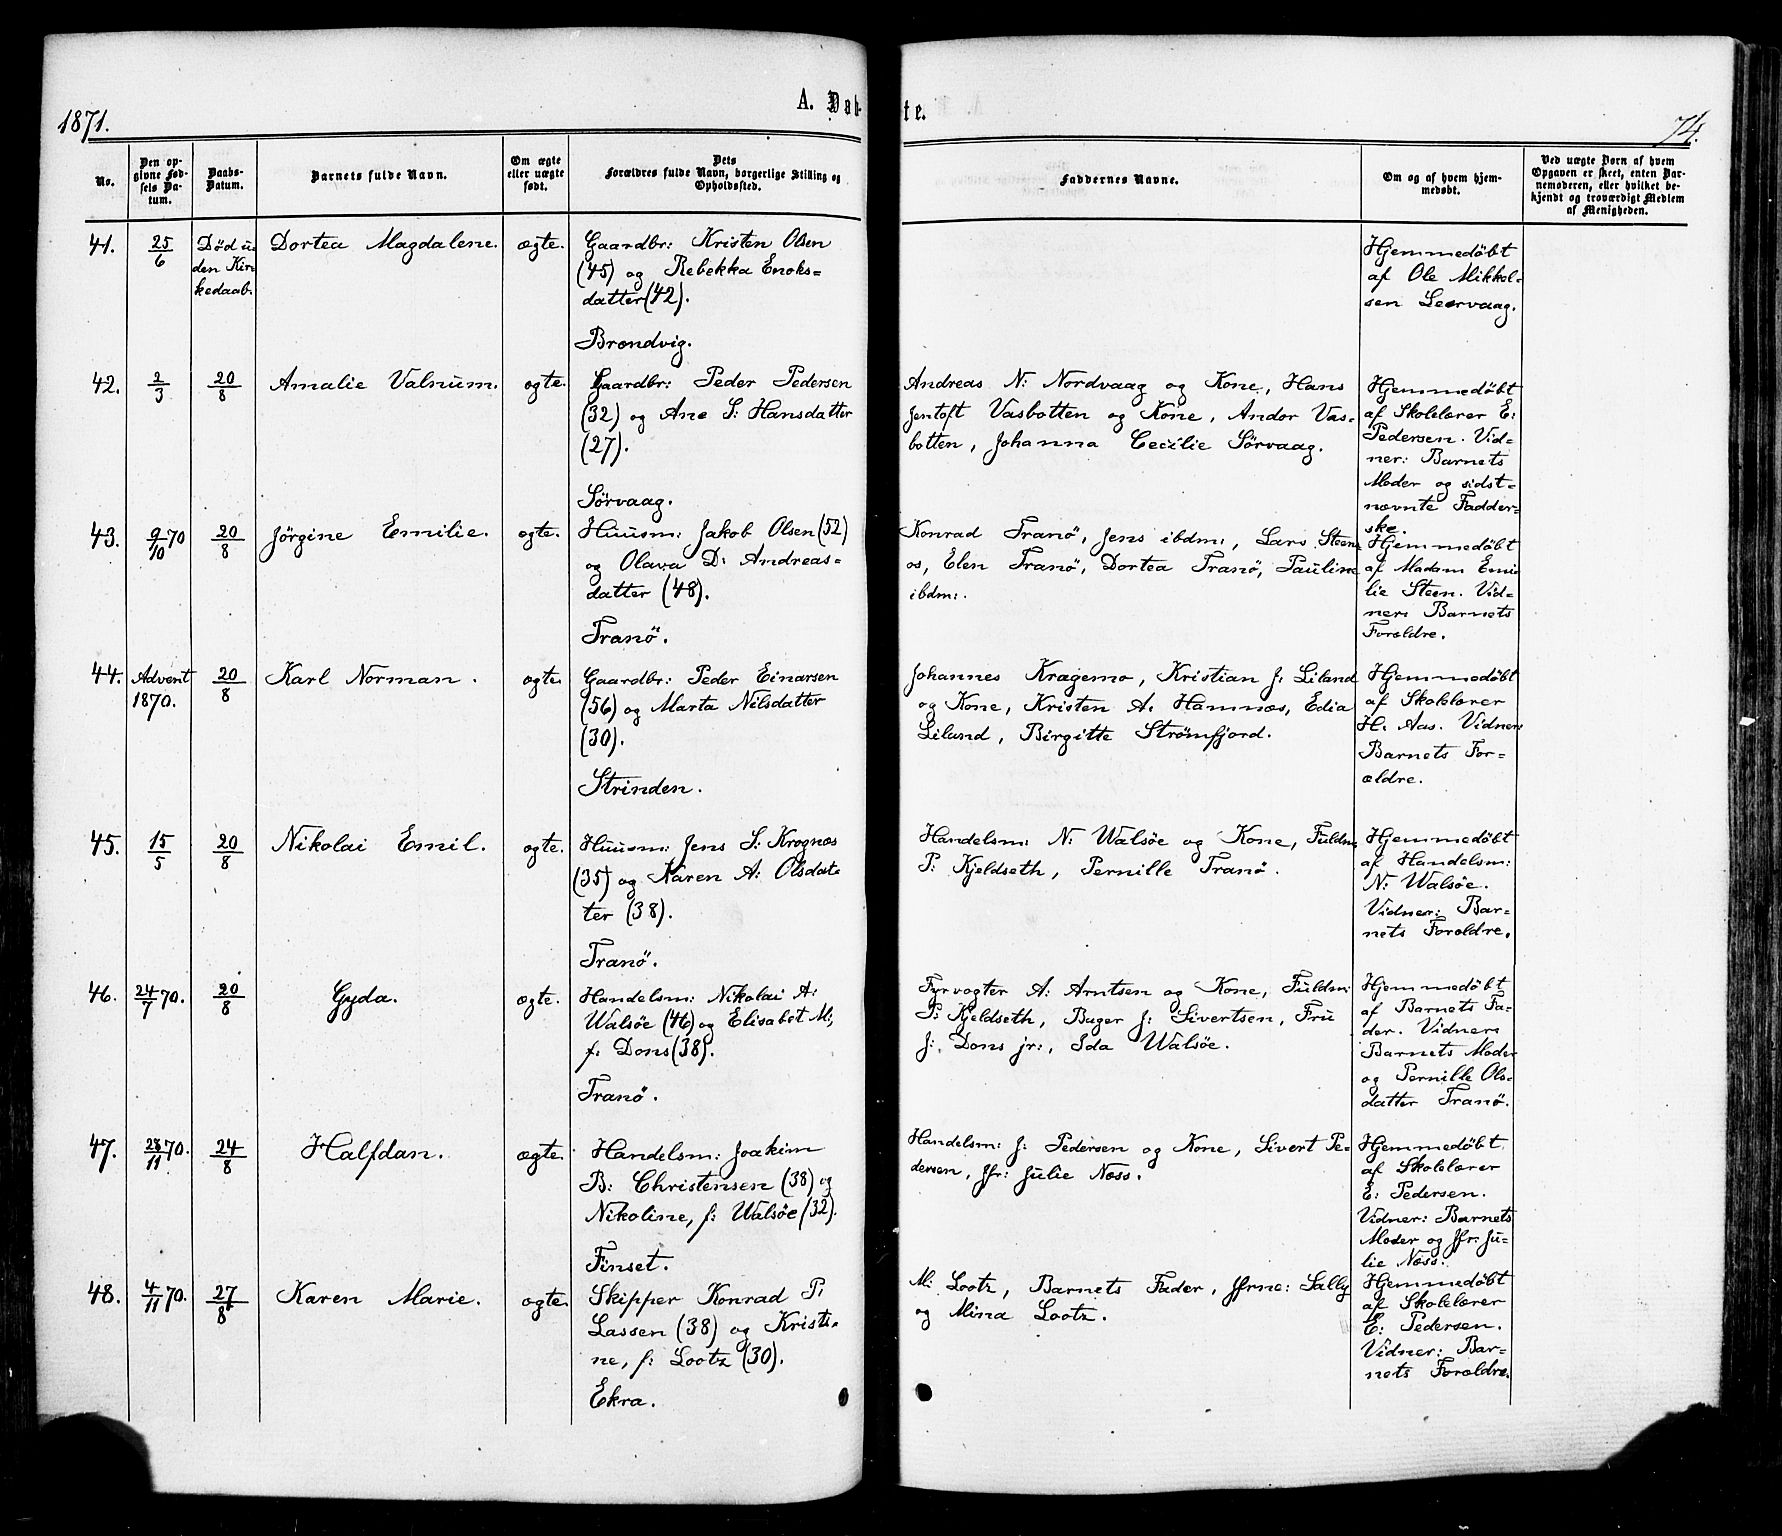 1871.
A. Døb-
te.
74.
No.
Den op-
givne Fød-
sels Da-
tum.
Daabs-
Datum.
Barnets fulde Navn.
Om ægte
eller uægte
født.
Dets
Forældres fulde Navn, borgerlige Stilling og
Opholdssted.
Faddernes Navne.
Om og af hvem hjem-
medøbt.
Ved uægte Børn af hvem
Opgaven er skeet, enten Bar-
nemoderen, eller hvilket be-
kjendt og troværdigt Medlem
af Menigheden.
41.
25/6
Død u-
den Kir-
kedaab.
Dortea Magdalene.
ægte.
Gaardbr: Kristen Olsen
(45) og Rebekka Enoks-
datter (42).
Brændvig.
Hjemmedøbt
af Ole Mikkel-
sen Leervaag.
42.
2/3
20/8
Amalie Valnum.
ægte.
Gaardbr: Peder Pedersen
(32) og Ane S: Hansdatter
(27).
Sørvaag.
Andreas N: Nordvaag og Kone, Hans
Jentoft Vasbotten og Kone, Andor Vas-
botten, Johanna Cecilie Sørvaag.
Hjemmedøbt
af Skolelærer E:
Pedersen. Vid-
ner: Barnets
Moder og sidst-
nævnte Fadder-
ske.
43.
9/10 70
20/8
Jørgine Emilie.
ægte.
Huusm: Jakob Olsen (52)
og Olava D: Andreas-
datter (48).
Tranö.
Konrad Tranö, Jens ibdm:, Lars Steen-
os, Elen Tranö, Dortea Tranö, Pauline
ibdm:.
Hjemmedøbt
af Madam Emi-
lie Steen. Vid-
ner: Barnets
Forældre.
44.
Advent
1870.
20/8
Karl Norman.
ægte.
Gaardbr: Peder Einarsen
(56) og Marta Nilsdatter
(30).
Strinden.
Johannes Kragemo, Kristian J: Liland
og Kone, Kristen A: Hamnæs, Edia
Liland, Birgitte Strømfjord.
Hjemmedøbt
af Skolelærer
H: Aas. Vidner:
Barnets For-
ældre.
45.
15/5
20/8
Nikolai Emil.
ægte.
Huusm: Jens S: Krognæs
(35) og Karen A: Olsdat-
ter (38).
Tranö.
Handelsm: N: Walsöe og Kone, Fuldm:
P: Kjeldseth, Pernille Tranö.
Hjemmedøbt
af Handelsm:
N: Walsöe.
Vidner: Bar-
nets Forældre.
46.
24/7 70.
20/8
Gyda.
ægte.
Handelsm: Nikolai A:
Walsöe (46) og Elisabet M:,
f: Dons (38).
Tranö.
Fyrvogter A: Arntsen og Kone, Fuldm:
P: Kjeldseth, Bager J: Sivertsen, Fru
J: Dons jr:, Ida Walsöe.
Hjemmedøbt
af Barnets Fa-
der. Vidner:
Barnets Moder
og Pernille Ols-
datter Tranö.
47.
28/11 70.
24/8
Halfdan.
ægte.
Handelsm: Joakim
B: Christensen (38) og
Nikoline, f: Walsöe (32).
Finset.
Handelsm: J: Pedersen og Kone, Sivert Pe-
dersen, Jfr: Julie Næss.
Hjemmedøbt
af Skolelærer
E: Pedersen.
Vidner: Barnets
Moder og Jfr: Ju-
lie Næss.
48.
4/11 70.
27/8
Karen Marie.
ægte.
Skipper Konrad P:
Lassen (38) og Kristi-
ne, f: Lootz (30).
Ekra.
M: Lootz, Barnets Fader, Jfrne: Sally
og Mina Lootz.
Hjemmedøbt
af Skolelærer
E: Pedersen.
Vidner: Bar-
nets Forældre.